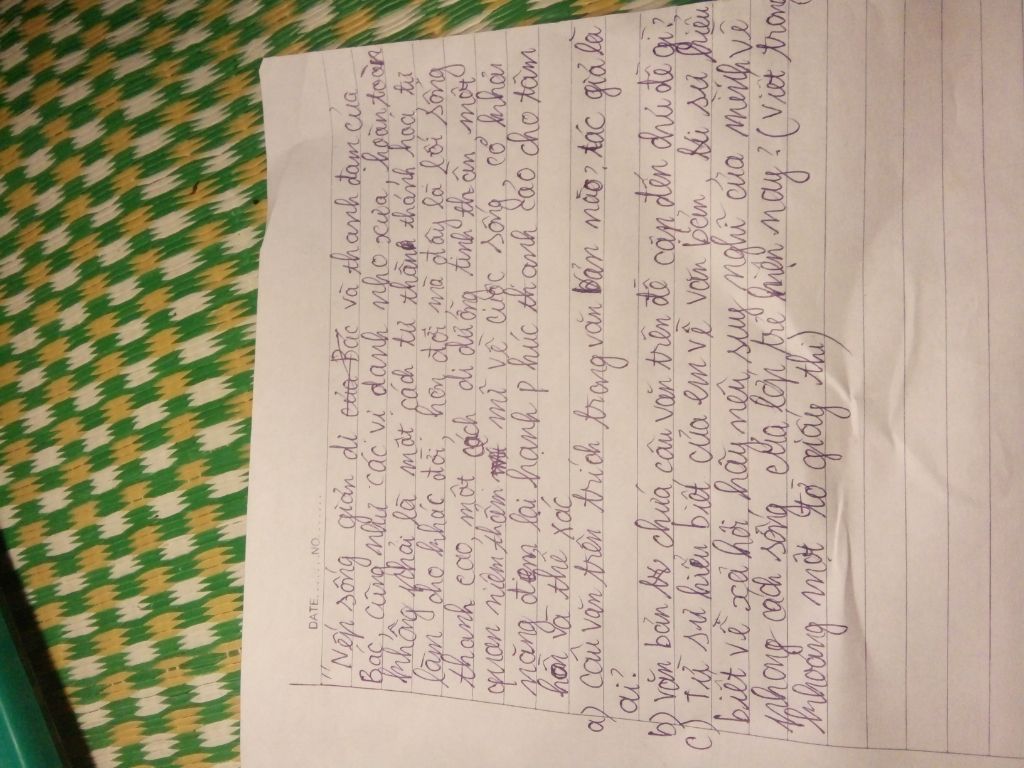 DATE..........NO..........
"Nếp sống giản dị của Bác và thanh đạm của
Bác cũng như các vị danh nho xưa, hoàn toàn
không phải là một cách tự thần thánh hoá tự
làm cho khác đời, hơn đời mà đây là lối sống
thanh cao, một cách di dưỡng tinh thần một
quan niệm thẩm mĩ về cuộc sống, có khả
năng đem lại hạnh phúc thanh cao cho tâm
hồn và thể xác
a) câu văn trên trích trong văn bản nào? tác giả là
ai?
b) văn bản chứa câu văn trên đề cập đến chủ đề gì?
c) Từ sự hiểu biết của em về văn bản, bài sự hiểu
biết về xã hội hãy nêu suy nghĩ của mình về
phong cách sống của lớp trẻ hiện nay? (viết trong
khoảng một tờ giấy thi)